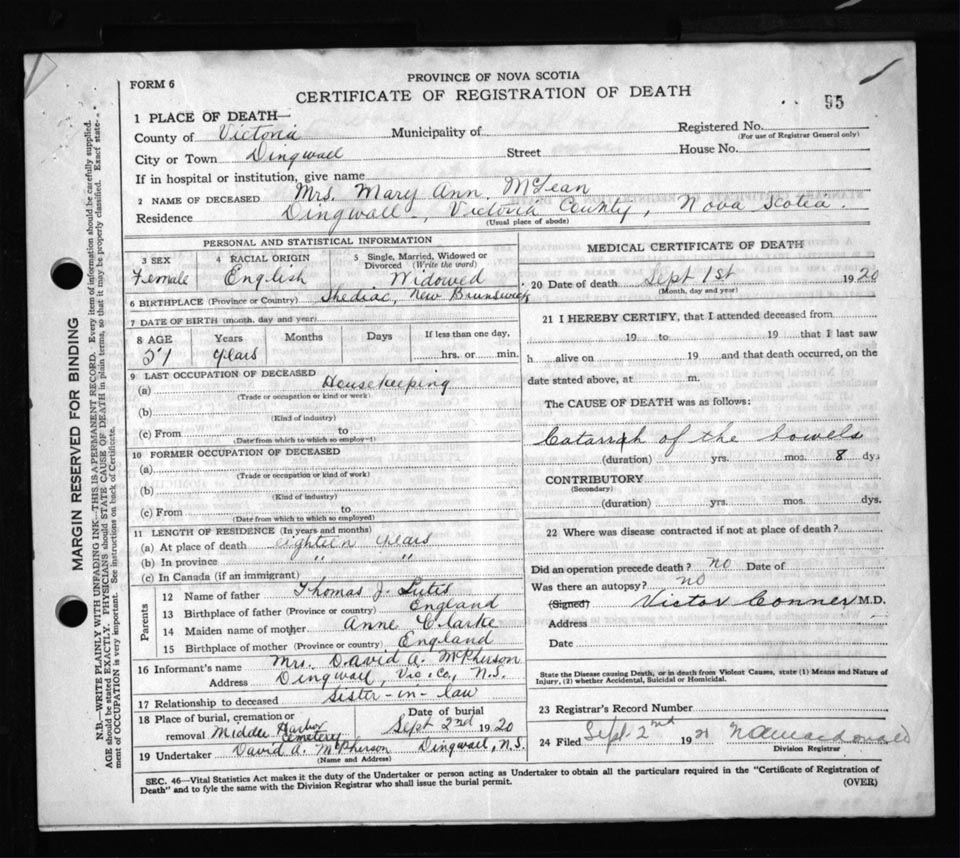 FORM 6
PROVINCE OF NOVA SCOTIA
CERTIFICATE OF REGISTRATION OF DEATH
95
1 PLACE OF DEATH—
County of Victoria Municipality of Registered No.
(For use of Registrar General only)
City or Town Dingwall Street House No.
If in hospital or institution, give name
2 NAME OF DECEASED Mrs. Mary Ann. McLean
Residence Dingwall, Victoria County, Nova Scotia.
(Usual place of abode)
PERSONAL AND STATISTICAL INFORMATION
3 SEX Female
4 RACIAL ORIGIN English
5 Single, Married, Widowed or Divorced (Write the word) Widowed
6 BIRTHPLACE (Province or Country) Shediac, New Brunswick
7 DATE OF BIRTH (month, day and year)
8 AGE Years Months Days If less than one day,
years hrs. or min.
9 LAST OCCUPATION OF DECEASED
(a) Housekeeping
(Trade or occupation or kind of work)
(b)
(Kind of industry)
(c) From to
(Date from which to which so employed)
10 FORMER OCCUPATION OF DECEASED
(a)
(Trade or occupation or kind of work)
(b)
(Kind of industry)
(c) From to
(Date from which to which so employed)
11 LENGTH OF RESIDENCE (In years and months)
(a) At place of death eighteen years
(b) In province " "
(c) In Canada (if an immigrant)
Parents
12 Name of father Thomas J. Lutes
13 Birthplace of father (Province or country) England
14 Maiden name of mother Anne Clarke
15 Birthplace of mother (Province or country) England
16 Informant's name Mrs. David A. McPherson
Address Dingwall, Vic. Co., N.S.
17 Relationship to deceased Sister-in-law
18 Place of burial, cremation or removal Middle Harbor Cemetery
Date of burial Sept 2nd 1920
19 Undertaker David A. McPherson Dingwall, N.S.
(Name and Address)
MEDICAL CERTIFICATE OF DEATH
20 Date of death Sept 1st 1920
(Month, day and year)
21 I HEREBY CERTIFY, that I attended deceased from
19 to 19 that I last saw
h alive on 19 and that death occurred, on the
date stated above, at m.
The CAUSE OF DEATH was as follows:
Catarrah of the bowels
(duration) yrs. mos. 8 dys
CONTRIBUTORY
(Secondary)
(duration) yrs. mos. dys.
22 Where was disease contracted if not at place of death?
Did an operation precede death? no Date of
Was there an autopsy? no
(Signed) Victor Conner M.D.
Address
Date
State the Disease causing Death, or in death from Violent Causes, state (1) Means and Nature of
Injury, (2) whether Accidental, Suicidal or Homicidal.
23 Registrar's Record Number
24 Filed Sept 2nd 19
Division Registrar
SEC. 46—Vital Statistics Act makes it the duty of the Undertaker or person acting as Undertaker to obtain all the particulars required in the "Certificate of Registration of
Death" and to fyle the same with the Division Registrar who shall issue the burial permit.
(OVER)
MARGIN RESERVED FOR BINDING
N.B.—WRITE PLAINLY WITH UNFADING INK—THIS IS A PERMANENT RECORD. Every item of information should be carefully supplied.
AGE should be stated EXACTLY. PHYSICIANS should STATE CAUSE OF DEATH in plain terms, so that it may be properly classified. Exact state-
ment of OCCUPATION is very important. See instructions on back of Certificate.